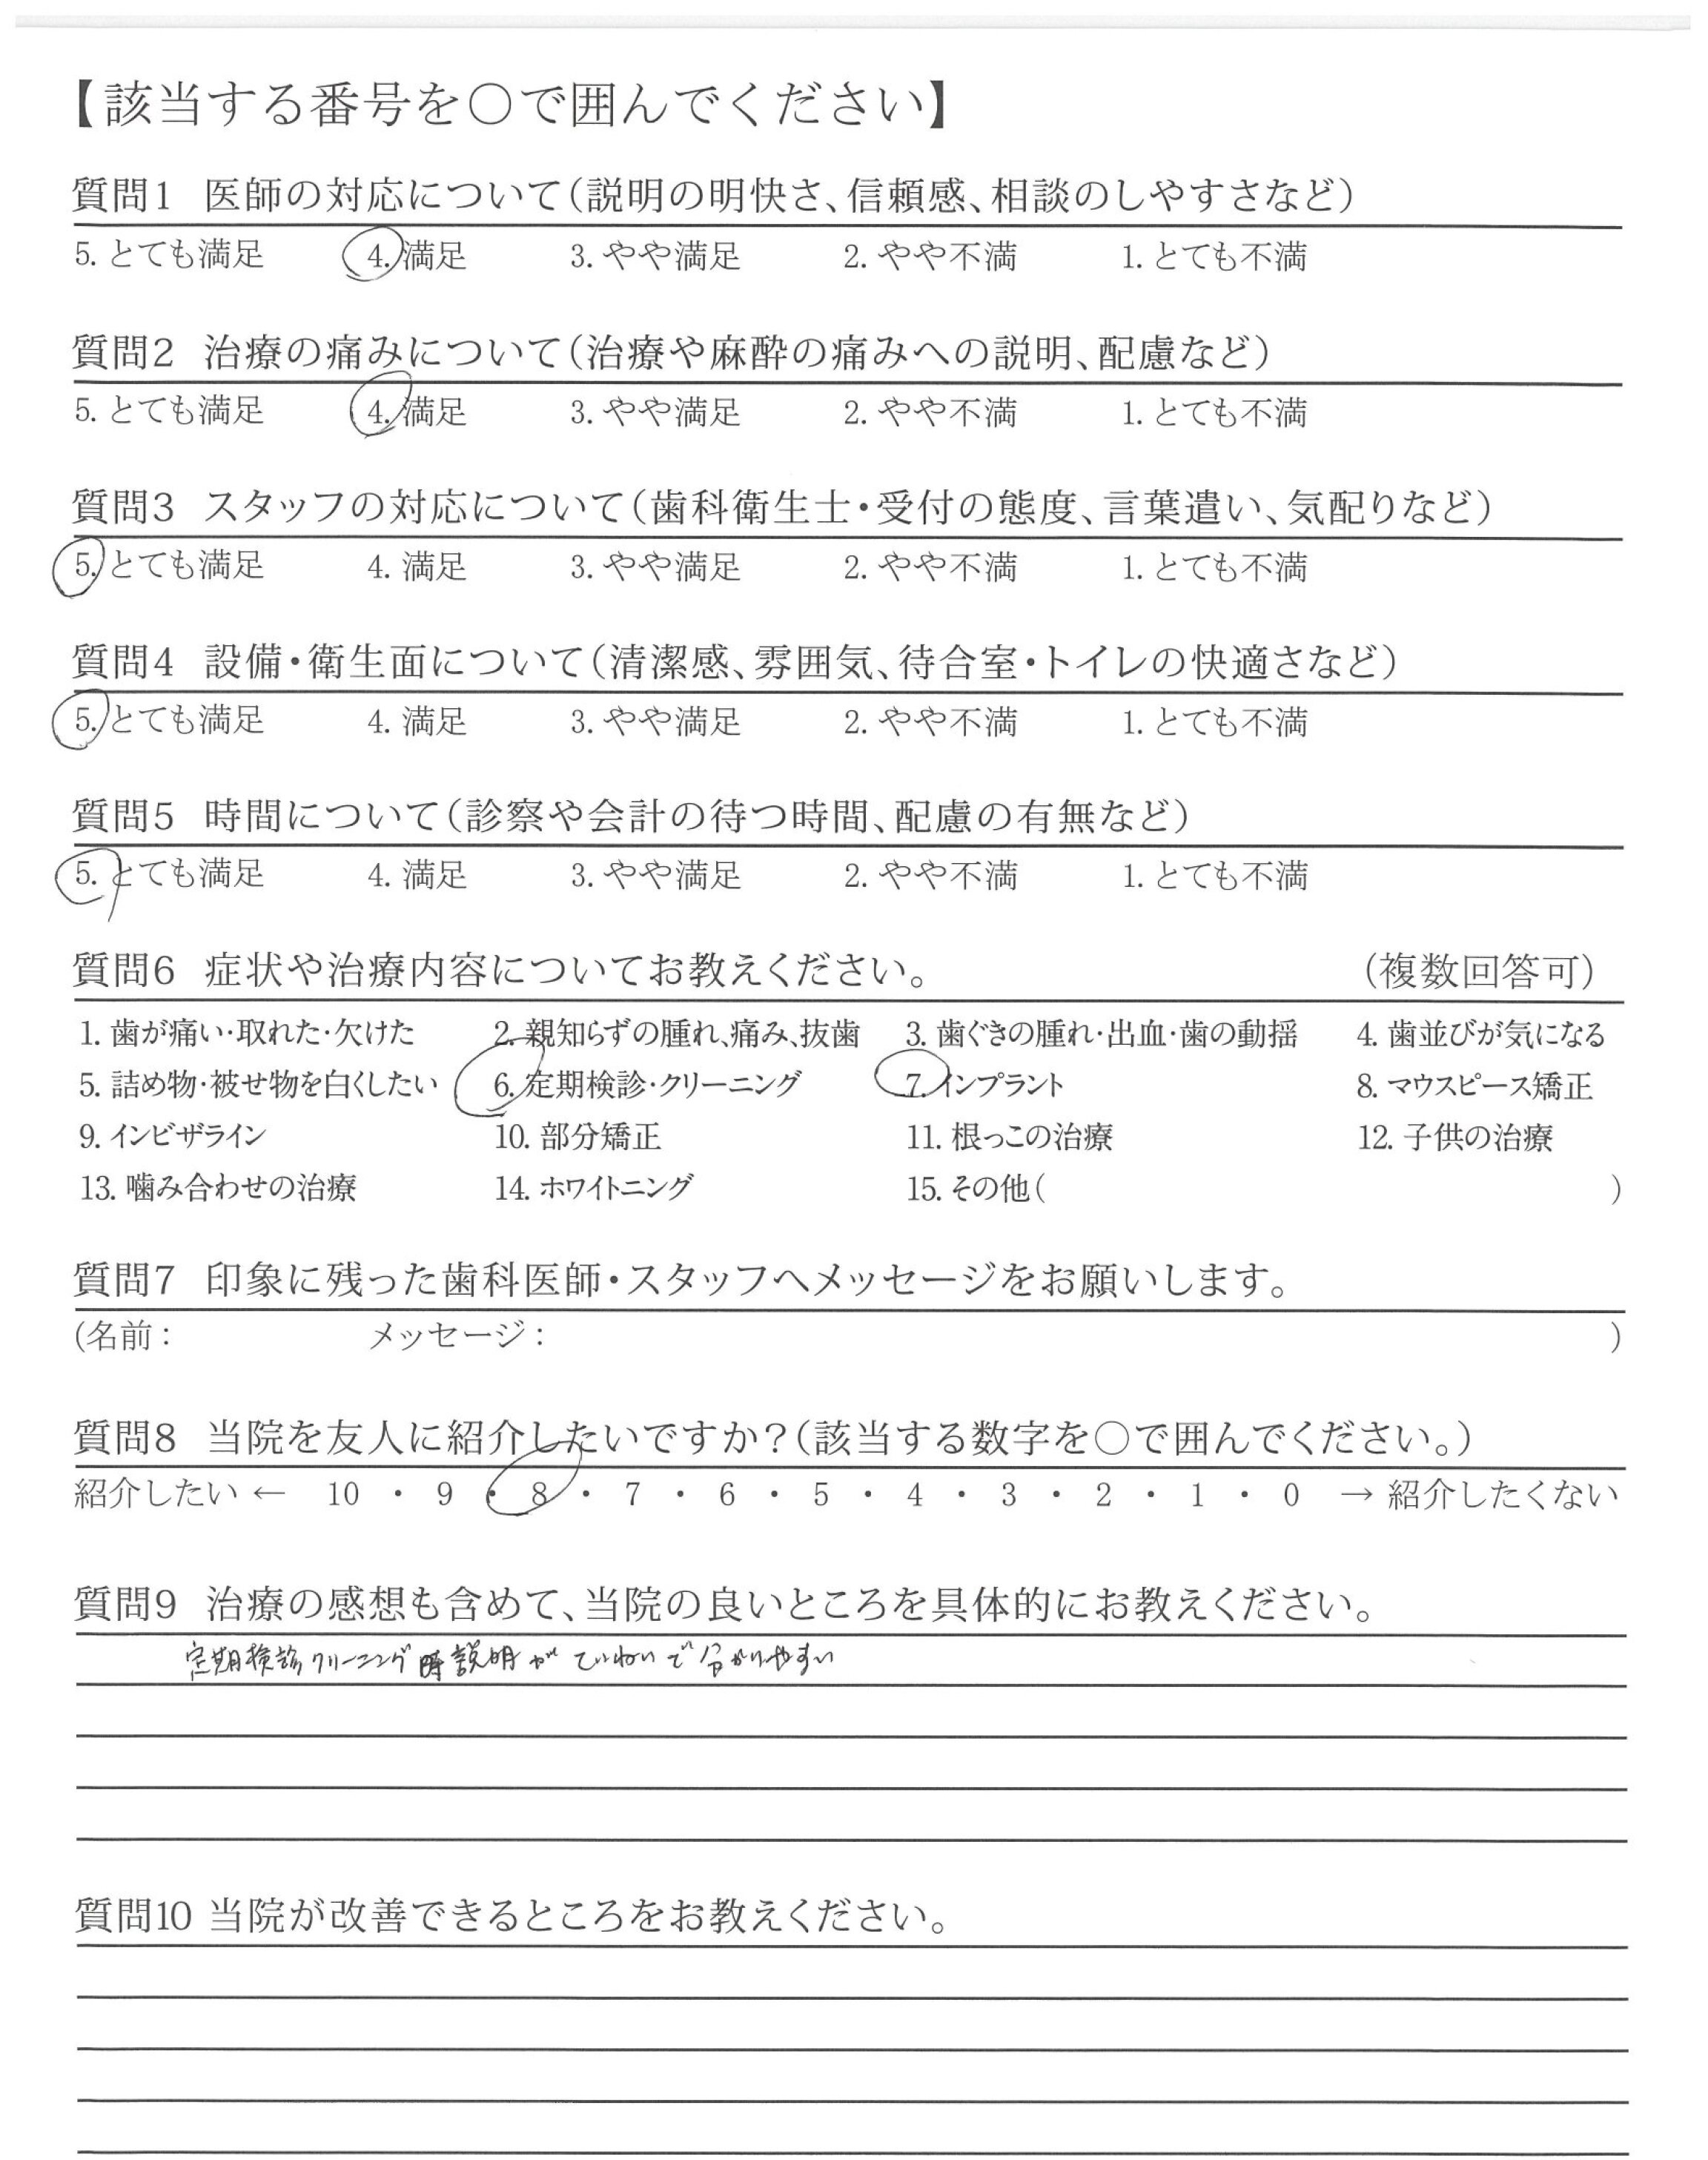 【該当する番号を○で囲んでください】
質問1 医師の対応について(説明の明快さ、信頼感、相談のしやすさなど)
5. とても満足 4. 満足 3. やや満足 2. やや不満 1. とても不満
質問2 治療の痛みについて(治療や麻酔の痛みへの説明、配慮など)
5. とても満足 4. 満足 3. やや満足 2. やや不満 1. とても不満
質問3 スタッフの対応について(歯科衛生士・受付の態度、言葉遣い、気配りなど)
5. とても満足 4. 満足 3. やや満足 2. やや不満 1. とても不満
質問4 設備・衛生面について(清潔感、雰囲気、待合室・トイレの快適さなど)
5. とても満足 4. 満足 3. やや満足 2. やや不満 1. とても不満
質問5 時間について(診察や会計の待つ時間、配慮の有無など)
5. とても満足 4. 満足 3. やや満足 2. やや不満 1. とても不満
質問6 症状や治療内容についてお教えください。 (複数回答可)
1. 歯が痛い・取れた・欠けた 2. 親知らずの腫れ、痛み、抜歯 3. 歯ぐきの腫れ・出血・歯の動揺 4. 歯並びが気になる
5. 詰め物・被せ物を白くしたい 6. 定期検診・クリーニング 7. インプラント 8. マウスピース矯正
9. インビザライン 10. 部分矯正 11. 根っこの治療 12. 子供の治療
13. 噛み合わせの治療 14. ホワイトニング 15. その他( )
質問7 印象に残った歯科医師・スタッフへメッセージをお願いします。
(名前: メッセージ: )
質問8 当院を友人に紹介したいですか?(該当する数字を○で囲んでください。)
紹介したい ← 10 ・ 9 ・ 8 ・ 7 ・ 6 ・ 5 ・ 4 ・ 3 ・ 2 ・ 1 ・ 0 → 紹介したくない
質問9 治療の感想も含めて、当院の良いところを具体的にお教えください。
定期検診クリーニング時説明がていねいで分かりやすい
質問10 当院が改善できるところをお教えください。